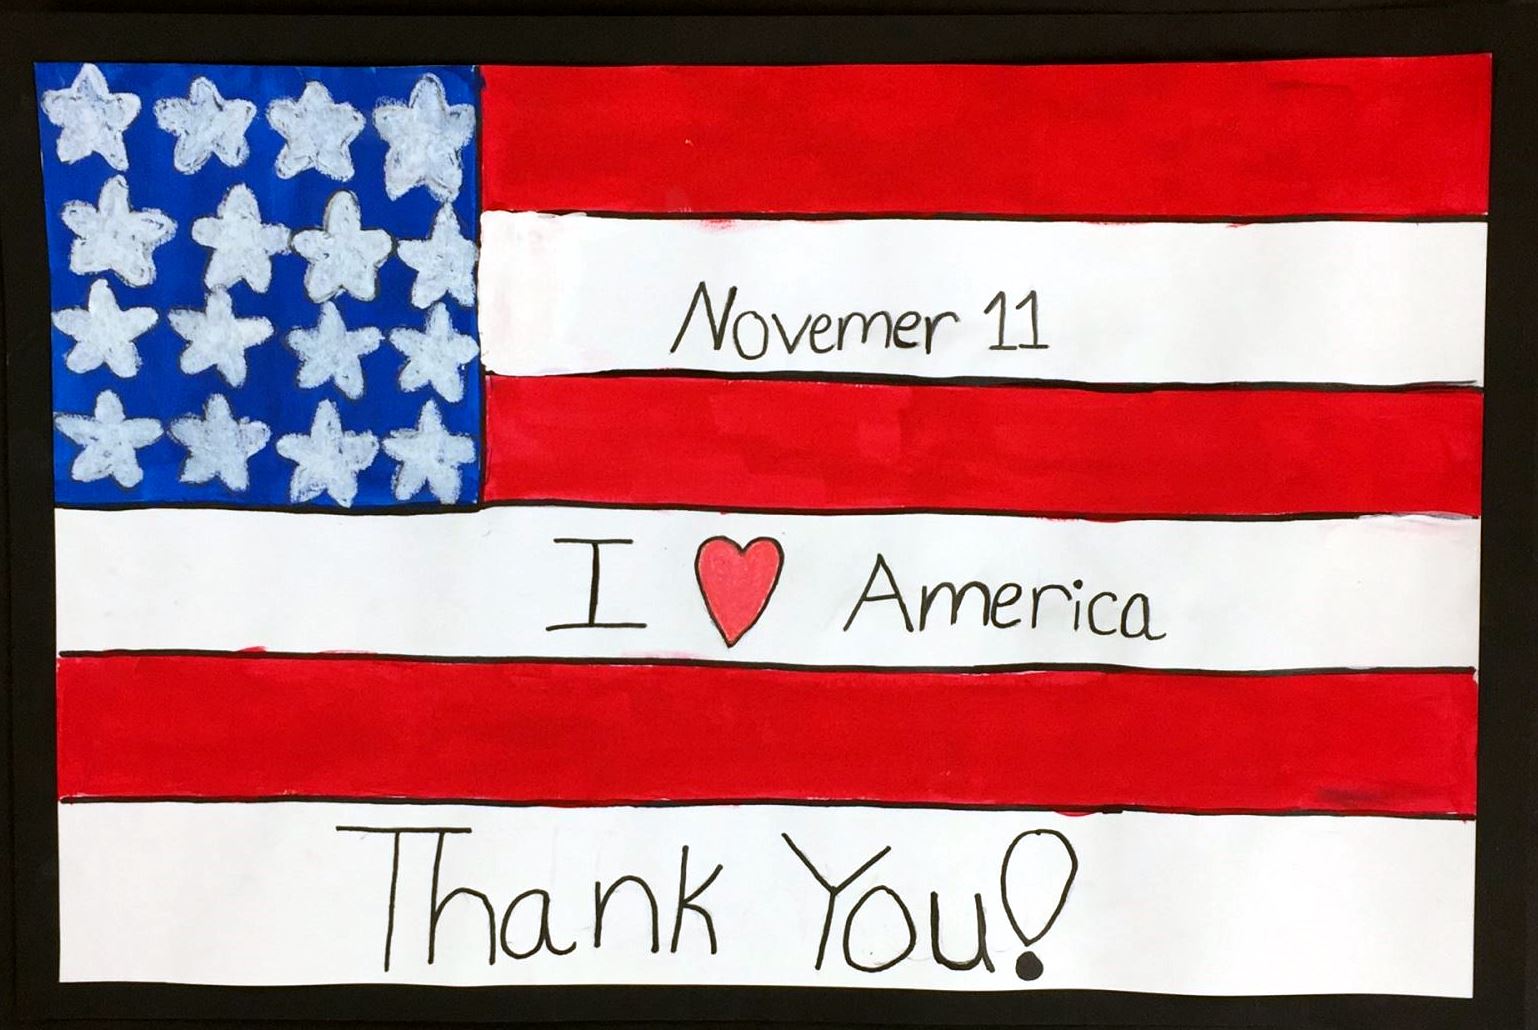 Novemer 11
I ❤ America
Thank You!